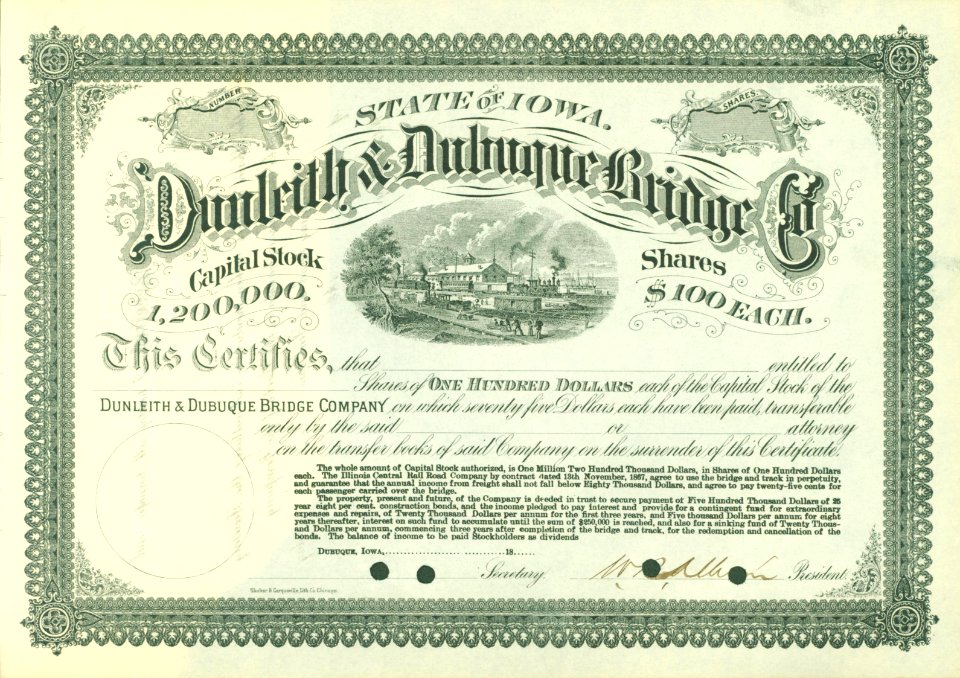 NUMBER
SHARES
STATE OF IOWA.
Dunleith & Dubuque Bridge Co
Capital Stock
1,200,000.
Shares
$100 EACH.
This Certifies, that entitled to
Shares of ONE HUNDRED DOLLARS each of the Capital Stock of the
DUNLEITH & DUBUQUE BRIDGE COMPANY on which seventy five Dollars each have been paid, transferable
only by the said or attorney
on the transfer books of said Company on the surrender of this Certificate.
The whole amount of Capital Stock authorized, is One Million Two Hundred Thousand Dollars, in Shares of One Hundred Dollars
each. The Illinois Central Rail Road Company by contract dated 13th November, 1867, agree to use the bridge and track in perpetuity,
and guarantee that the annual income from freight shall not fall below Eighty Thousand Dollars, and agree to pay twenty-five cents for
each passenger carried over the bridge.
The property, present and future, of the Company is deeded in trust to secure payment of Five Hundred Thousand Dollars of 25
year eight per cent. construction bonds, and the income pledged to pay interest and provide for a contingent fund for extraordinary
expenses and repairs, of Twenty Thousand Dollars per annum for the first three years, and Five thousand Dollars per annum, for eight
years thereafter, interest on such fund to accumulate until the sum of $250,000 is reached, and also for a sinking fund of Twenty Thous-
and Dollars per annum, commencing three years after completion of the bridge and track, for the redemption and cancellation of the
bonds. The balance of income to be paid Stockholders as dividends
DUBUQUE, IOWA, 18
Secretary. President.
& Carqueville Lith Co Chicago.